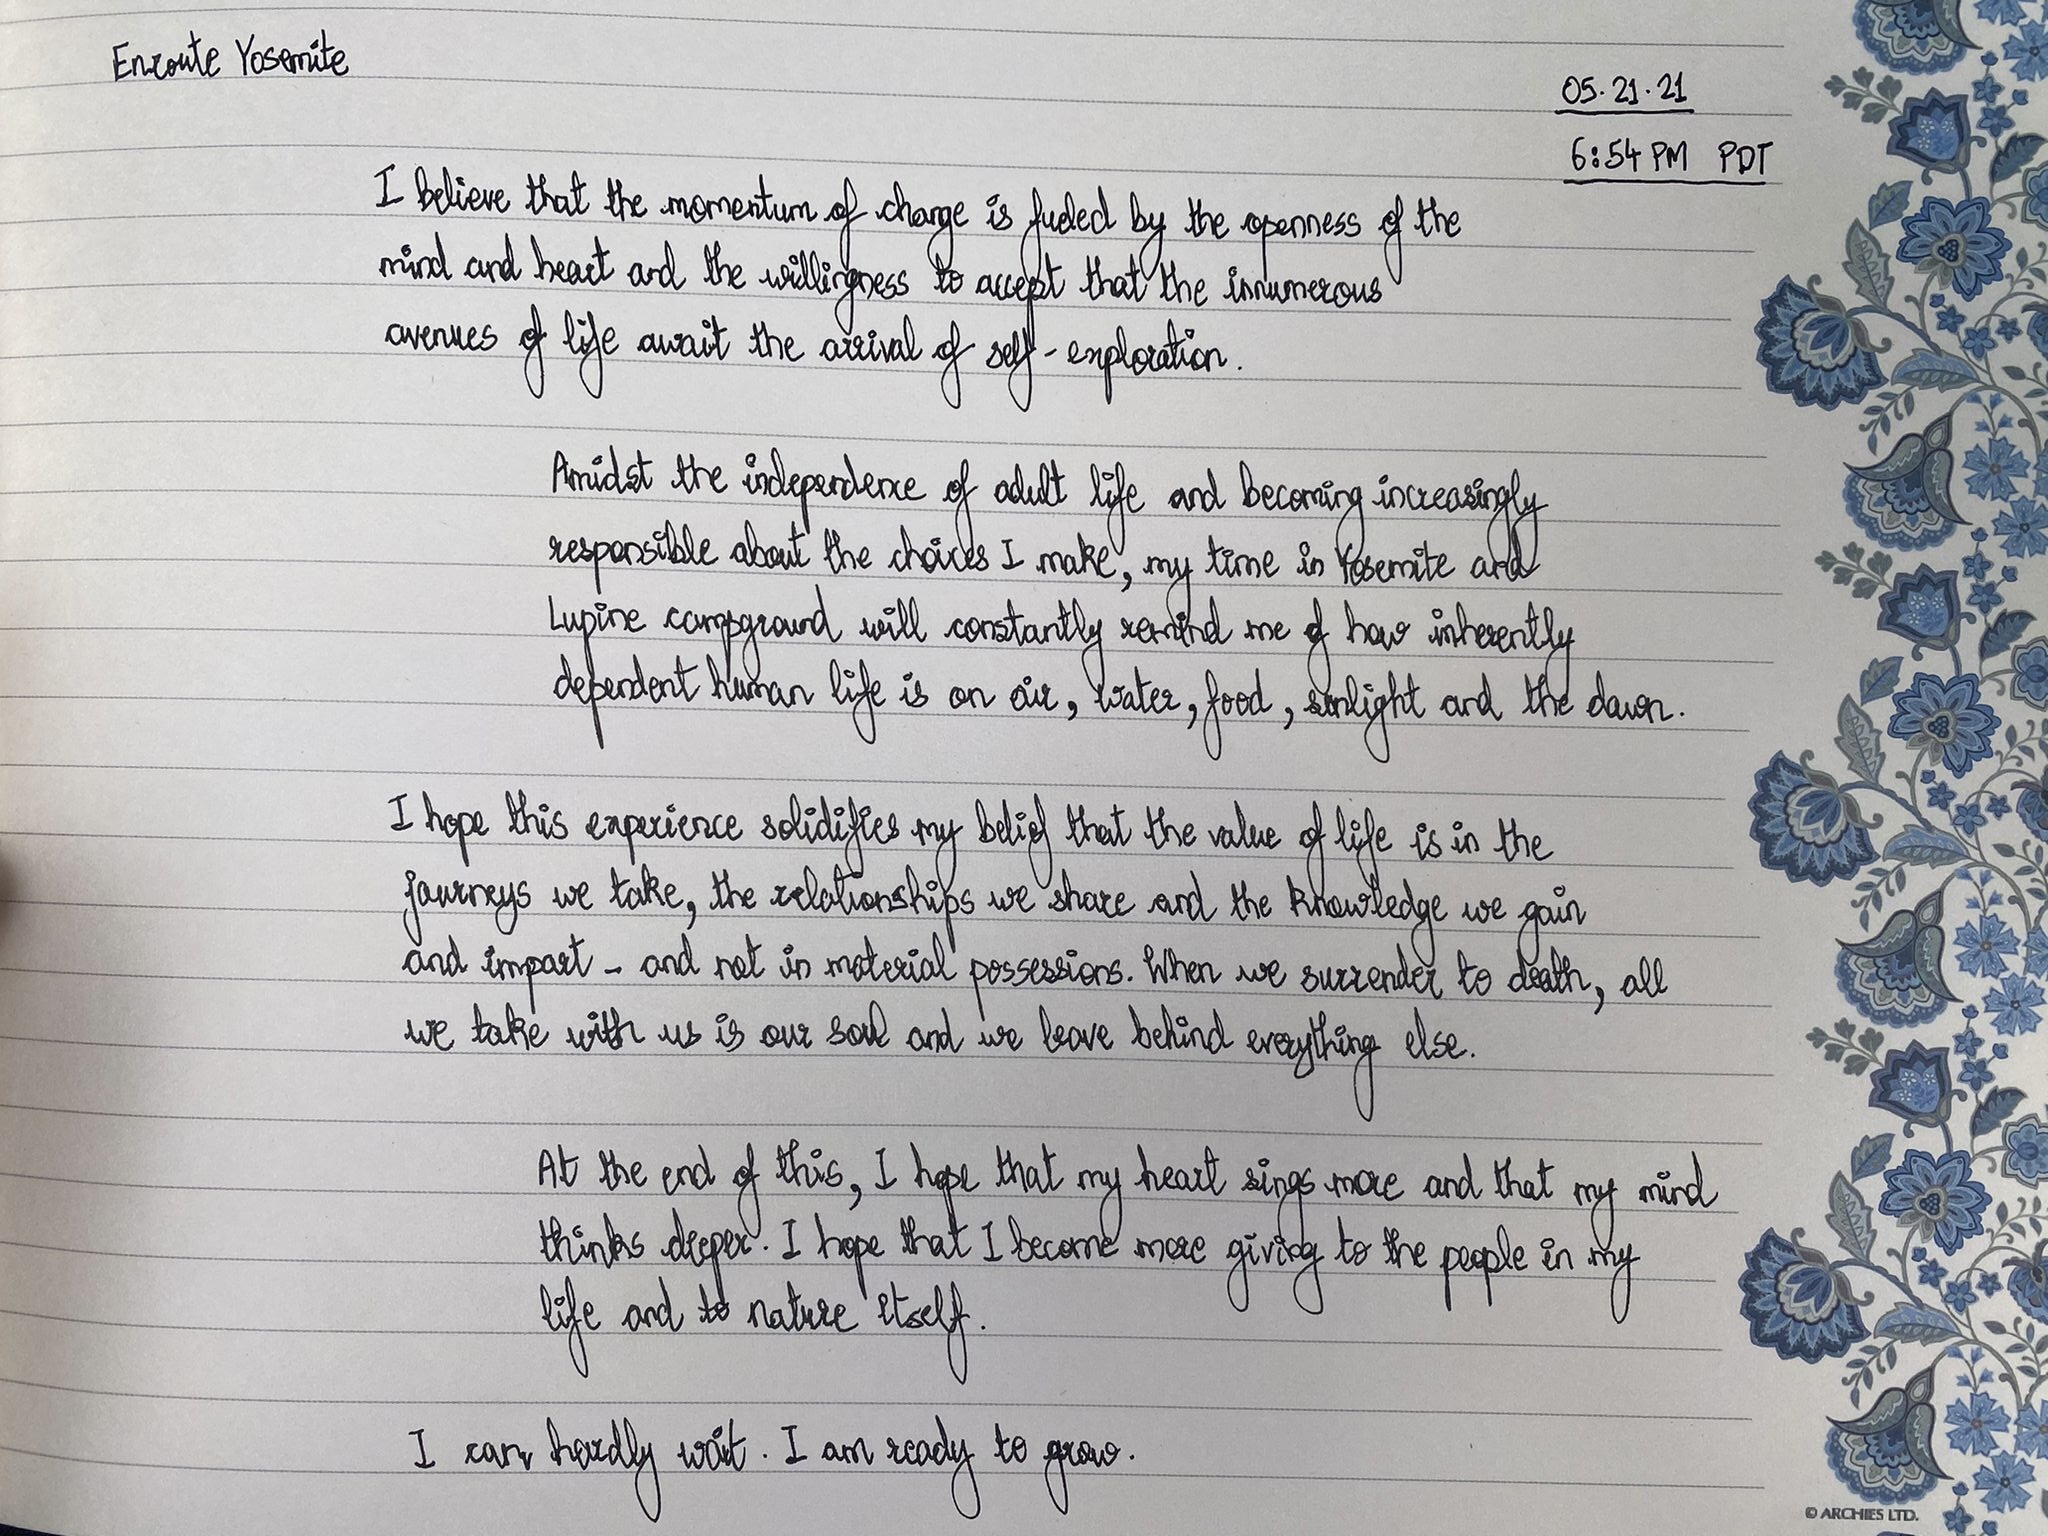 Enroute Yosemite
05.21.21
6:54 PM PDT
I believe that the momentum of change is fueled by the openness of the
mind and heart and the willingness to accept that the innumerous
avenues of life await the arrival of self-exploration.
Amidst the independence of adult life and becoming increasingly
responsible about the choices I make, my time in Yosemite and
Lupine campground will constantly remind me of how inherently
dependent human life is on air, water, food, sunlight and the dawn.
I hope this experience solidifies my belief that the value of life is in the
journeys we take, the relationships we share and the knowledge we gain
and impart - and not in material possessions. When we surrender to death, all
we take with us is our soul and we leave behind everything else.
At the end of this, I hope that my heart sings more and that my mind
thinks deeper. I hope that I become more giving to the people in my
life and to nature itself.
I can hardly wait. I am ready to grow.
© ARCHIES LTD.